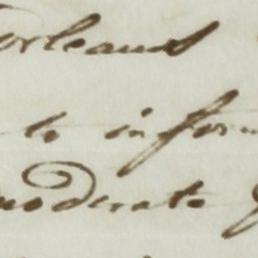 orleans
to inform
moderate